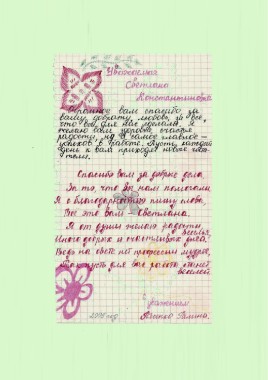 Уважаемая
Светлана
Константиновна
Огромное вам спасибо за
вашу доброту, любовь, за всё,
что вы для нас сделали. Я
желаю вам здоровья, счастья
радости, ну а самое главное -
успехов в работе. Пусть каждый
день к вам приходят новые
Спасибо вам за добрые дела,
За то, что Вы нам помогали
Я с благодарностью пишу слова,
Все это вам - Светлана.
Я от души желаю радости
веселья,
Много добрых и счастливых дней.
Ведь на свете нет профессии мудрей,
Так пусть для Вас работа станет
веселей
С уважением
2016 год. Галина.